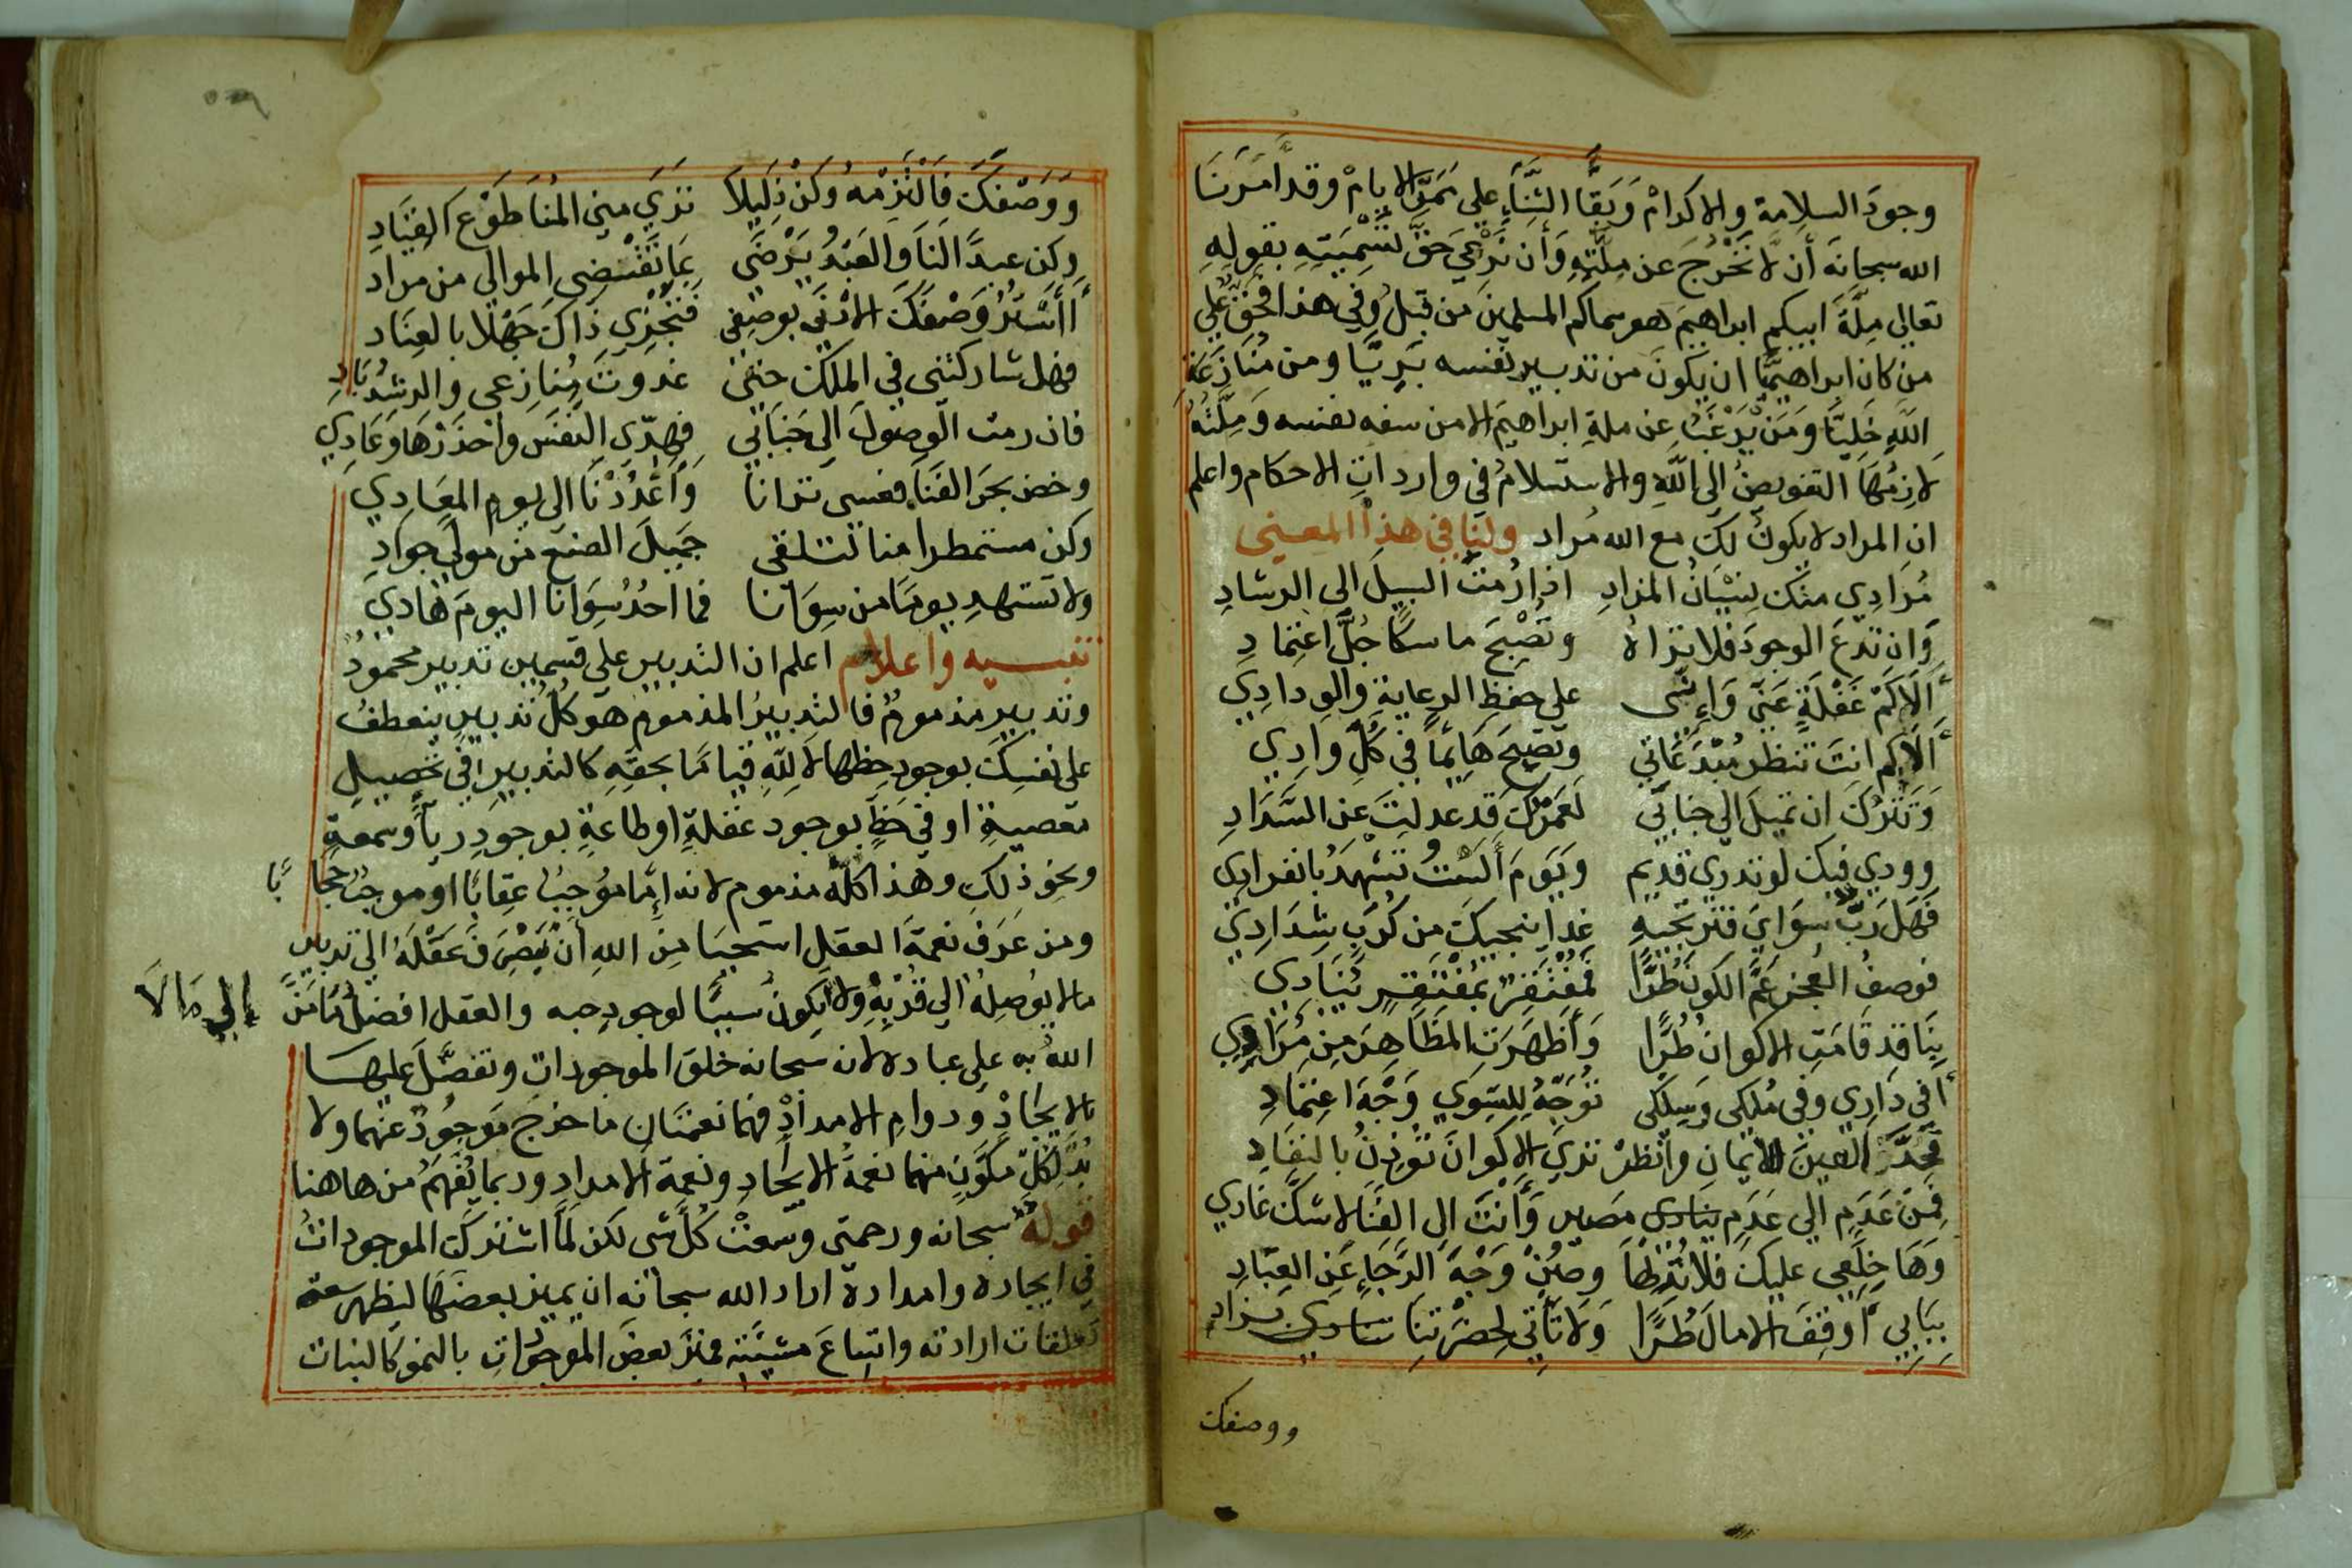 وجودَ السلامة والاكرامْ وَبَقَّاَ الثنَّاَءِ علي مَمَرِّ الايامْ وقد أَمَرَنَا
الله سبحانَه أن لاَّ نَخْرُجَ عن مِلَّتِهِ وَأَن نَرْعَيَ حَقَّ تَسْمِيَتِهِ بقولِهِ
تعالي مِلَّةَ ابيكم ابراهيمَ هو سماكم المسلمينَ من قبلُ وَفي هذا فحَقٌّ عَلَي
من كان ابراهيميًّا ان يكونَ من تدبير نفسه بَرِيًّا ومن مُنَازَعَةِ
اللهِ خَلِيًّا وَمَنْ يَرْغَبُ عن ملةِ ابراهيمَ الا من سفه نفسه وَمِلَّتُهُ
لاَزِمُهَا التفويضُ الي اللهِ والاستسلامُ في وارداتِ الاحكام واعلم
ان المراد لا يكونَ لكَ مع الله مُراد ولنا في هذا المعني
مُرَادِي منكَ نِسْيَانُ المرَادِ اذا رُمْتَ السبيلَ الي الرشادِ
وَان تدعَ الوجودَ فلا تراهُ وتُصْبِحَ ماسكاً حُبلَ اعتِمادِ
أَلاَ كَمْ غَفْلَةٍ عَنِّي وَإِنِّي علي حفظِ الرعايةِ والودادِي
أَلاَ كم انتَ تنظر مُبْدَعَاتِي وتُصْبِحَ هَايِمًا في كُلِّ وادِي
وَتَتْرُكُ ان تميلَ الي جنابي لَعَمْرُكَ قد عدلتَ عن السَّدَادِ
وودي فيكَ لو تدري قديم وَيَوَمَ أَلَسْتُ تَشْهَدُ بانفرادِي
فَهَل رَبٌّ سِوَايَ فَترتَجيهِ غدا ينجيكَ من كُرَبٍ شِدَادِي
فوصفُ العجز عَمَّ الكونَ طُرًّا فَمُفْتَقِرٌ بمُفْتَقِرٍ يُنَادِي
بِنَا قدِ قَامَتِ الاكوانُ طُرًّا وَأَظْهَرَتِ المَظَاهِرَ مِن مُرَادِي
أَفي دَارِي وفي مُلكي وَمِلكي تُوَجِّهُ لِلسِّوَي وَجْهَ اعتِمَادِ
فَحَدِّقْ العينَ الايمَانِ وانظرْ تَرَي الاكوانَ تُوذِنُ بالنفادِ
فَمِن عَدَمٍ الي عَدَمٍ مَصيرٌ وَأَنْتَ الي الفَنَا لاشكَّ غادِي
وَهَا خِلَعِي عليكَ فلا تُزِلْهَا وصُنْ وَجْهَ الرَّجَاءِ عَن العِبَادِ
بِبَابِي أَوقِفِ الامالَ طُرًّا وَلاَ تَأْتِي لِحَضْرَتِنَا بزاد
ووصفك
وَوَصْفَكَ فَالْتَزِمْهُ وَكُنْ ذَلِيلاً تَرَي مِني المُنَا طَوْعَ القِيَادِ
وكن عبدًا لَنَا وَالعَبْدُ يَرْضَي بِمَا تَقْتَضِي الموالي من مُراد
أَأَسْتُرُ وَصْفَكَ الادْنَي بوصفي فَتَجْزِي ذَاكَ جَهْلًا بالعِنَاد
فهل شاركتني في الملكِ حتي غدوتَ مُنَازِعي والرشدُ بَادِ
فان رمتَ الوصُولَ الي جَنَابي فَهذِي النفسَ واحْذَرْهَا وَعَادِي
وخض بحَر الفَنَا فعسي ترانا وَأَعْدُدْنَا الي يومِ المعَادِي
وكن مستمطرا منا لتلقي جَمِيلَ الصنع من مَوليً جوادِ
ولا تستهدِ يوماً من سِوَانا فما احدٌ سِوَانَا اليومَ هَادِي
تنبيه واعلام اعلم ان التدبير علي قسمين تدبير محمودٌ
وتدبير مذمومٌ فالتدبيرُ المذموم هو كُلُّ تدبيرٍ ينعطفُ
علي نفسِكَ بوجودِ حظِها لاَ لِلّهِ قيامًا بحقّهِ كالتدبيرِ في تحصيلِ
معصيةٍ او في حَظٍّ بوجود غفلةٍ او طاعةٍ بوجودِ رياً وسمعةٍ
ونحوِ ذلكَ وهذا كلّه مذموم لانه إِمَّا مُوجِبُ عِقاباً او موجبُ حجابًا
ومن عَرَفَ نعمةَ العقلِ استحيَا مِنَ اللهِ أَنْ يَصْرِفَ عَقْلَهُ الي تدبير
مالا يُوصِلُهُ الي قُرْبِهِ ولا يكونُ سببًا لوجودِ حبه والعقل افضلُ مَا مَنَّ
إلي مَا لَا
اللهُ به علي عباده لانه سبحانه خلق الموجوداتِ وتفضَّلَ عليها
بالايجادْ ودوامِ الامدادْ فهما نعمتانِ ما خرج مَوجودٌ عنهما ولا
بُدَّ لِكُلِّ مكَوَّنٍ منهما نعمةُ الايجادِ ونعمة الامدادِ وربما يُفْهَمُ من هاهنا
قولهُ سبحانه ورحمتي وسعتْ كُلَّ شي لكن لَمَّا اشتركَت الموجوداتُ
في ايجاده وامداده اراد الله سبحانه ان يميز بعضَهَا ليظهر سعة
تعلقات ارادته واتساعَ مشيَّته فميّزَ بعضَ الموجوداتِ بالنمو كالنبات